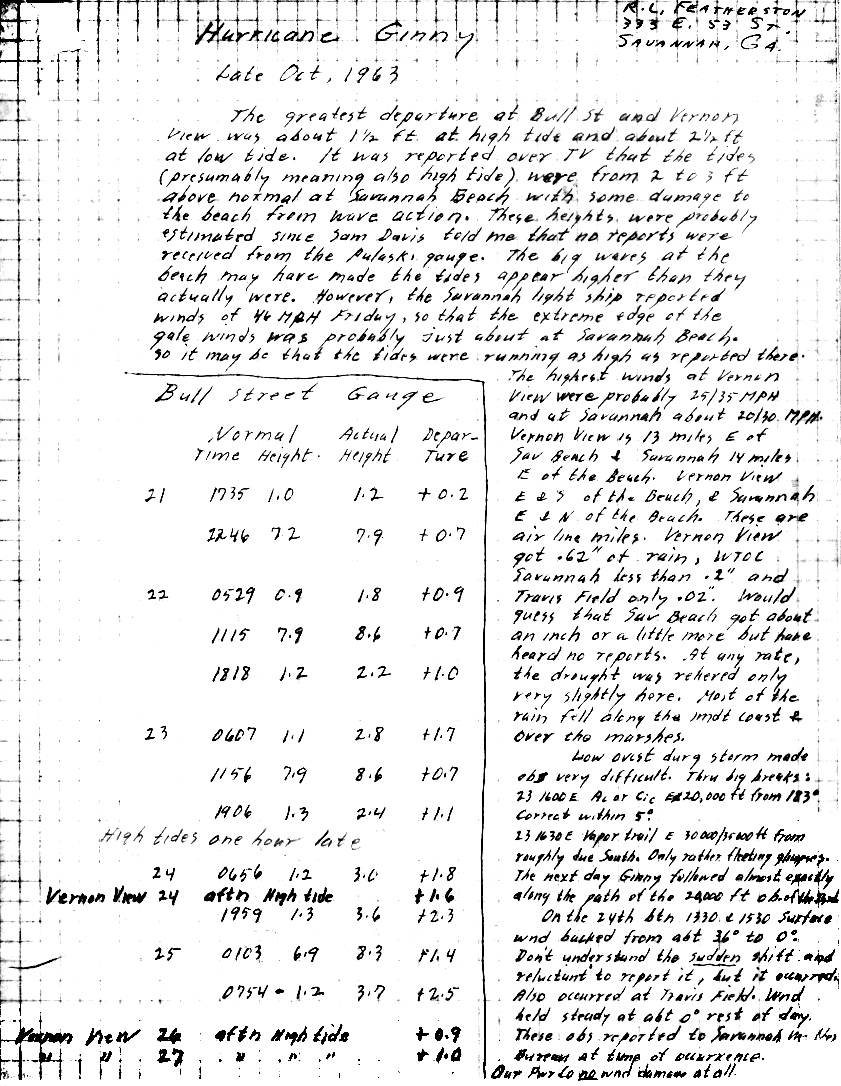 R.L. FEATHERSTON
333 E. 53 ST.
SAVANNAH, GA.
Hurricane Ginny
Late Oct, 1963
The greatest departure at Bull St and Vernon
View was about 1½ ft. at high tide and about 2½ ft
at low tide. It was reported over TV that the tides
(presumably meaning also high tide) were from 2 to 3 ft
above normal at Savannah Beach with some damage to
the beach from wave action. These heights were probably
estimated since Sam Davis told me that no reports were
received from the Pulaski gauge. The big waves at the
beach may have made the tides appear higher than they
actually were. However, the Savannah light ship reported
winds of 46 MPH Friday, so that the extreme edge of the
gale winds was probably just about at Savannah Beach.
so it may be that the tides were running as high as reported there.
Bull Street Gauge
Normal Actual Depar-
Time Height. Height Ture
21 1735 1.0 1.2 +0.2
2246 7.2 7.9 +0.7
22 0529 0.9 1.8 +0.9
1115 7.9 8.6 +0.7
1818 1.2 2.2 +1.0
23 0607 1.1 2.8 +1.7
1156 7.9 8.6 +0.7
1906 1.3 2.4 +1.1
High tides one hour late
24 0656 1.2 3.0 +1.8
Vernon View 24 aftn High tide +1.6
1959 1.3 3.6 +2.3
25 0103 6.9 8.3 +1.4
0754 - 1.2 3.7 +2.5
Vernon View 26 aftn High tide +0.9
" " 27 " " " +1.0
The highest winds at Vernon
View were probably 25/35 MPH
and at Savannah about 20/30 MPH.
Vernon View is 13 miles E of
Sav Beach & Savannah 14 miles
E of the Beach. Vernon View
E & S of the Beach, & Savannah
E & N of the Beach. These are
air line miles. Vernon View
got .62" of rain, WTOC
Savannah less than .2" and
Travis Field only .02". Would
guess that Sav Beach got about
an inch or a little more but have
heard no reports. At any rate,
the drought was relieved only
very slightly here. Most of the
rain fell along the imdt coast &
over the marshes.
Low ovcst durg storm made
obs very difficult. Thru big breaks:
23 1600E Ac or Cic E 20,000 ft from 183°
Correct within 5°
23 1630E Vapor trail E 30000/35000 ft from
roughly due South. Only rather fleeting glimpses.
The next day Ginny followed almost exactly
along the path of the 20,000 ft ob. of the
On the 24th btn 1330 & 1530 Surface
wnd backed from abt 36° to 0°.
Don't understand the sudden shift and
reluctant to report it, but it ocurred.
Also occurred at Travis Field. Wnd
held steady at abt 0° rest of day.
These obs reported to Savannah
Bureau at time of ocurrence.
Our no wnd damage at all.